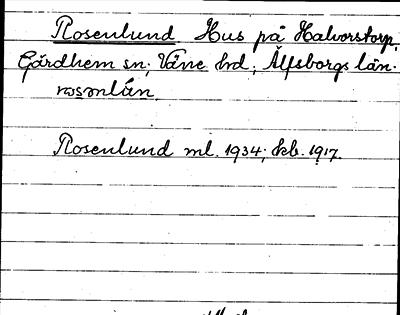 Rosenlund Hus på Halvorstorp,
Gärdhem sn; Väne hd; Älfsborgs län.
rosənlán.
Rosenlund ml. 1934; kb. 1917.